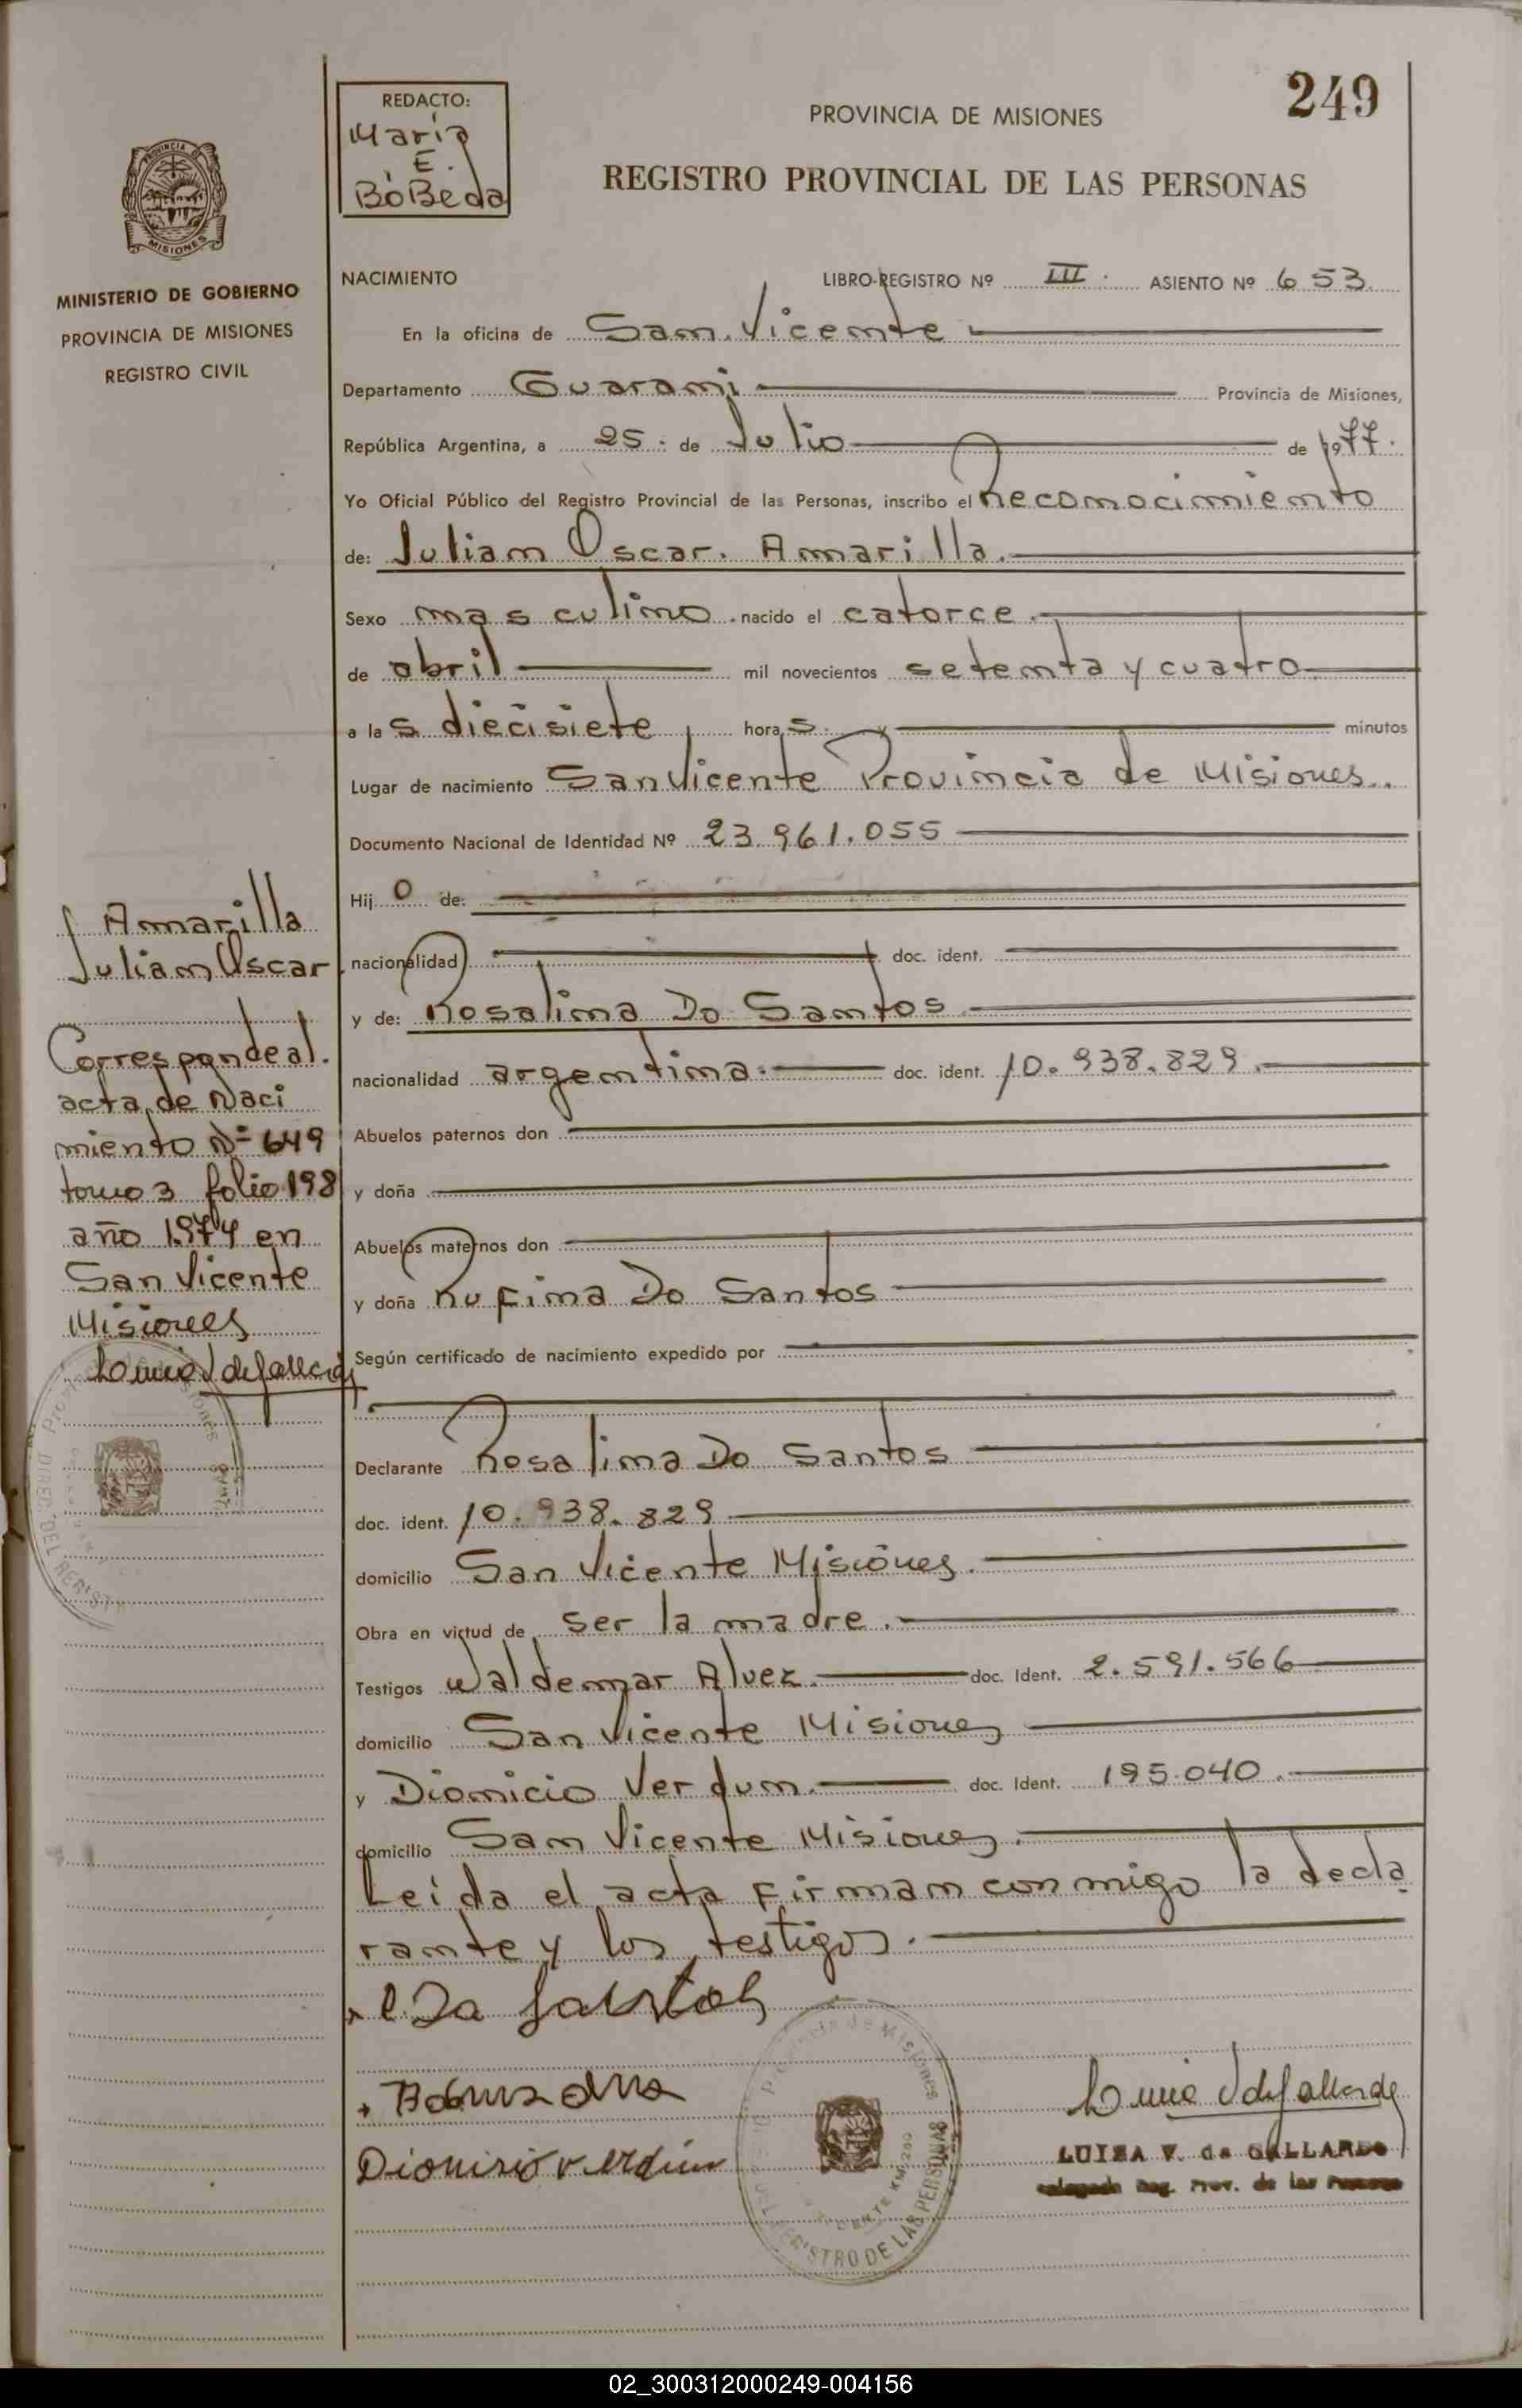 249
REDACTO:
María
E.
BóBeda
PROVINCIA DE MISIONES
REGISTRO PROVINCIAL DE LAS PERSONAS
PROVINCIA DE
MISIONES
MINISTERIO DE GOBIERNO
PROVINCIA DE MISIONES
REGISTRO CIVIL
NACIMIENTO LIBRO-REGISTRO Nº III. ASIENTO Nº 653
En la oficina de San Vicente
Departamento Guaraní Provincia de Misiones,
República Argentina, a 25 de Julio de 1977.
Yo Oficial Público del Registro Provincial de las Personas, inscribo el Reconocimiento
de: Julian Oscar. Amarilla.
Sexo masculino nacido el catorce
de abril mil novecientos setenta y cuatro
a las diecisiete horas y minutos
Lugar de nacimiento San Vicente Provincia de Misiones..
Documento Nacional de Identidad Nº 23.961.055
Hijo de:
nacionalidad doc. ident.
y de: Rosalina Do Santos
nacionalidad argentina. doc. ident. 10.938.829.
Abuelos paternos don
y doña
Abuelos maternos don
y doña Rufina Do Santos
Según certificado de nacimiento expedido por
Declarante Rosalina Do Santos
doc. ident. 10.938.829
domicilio San Vicente Misiones.
Obra en virtud de ser la madre.
Testigos Waldemar Alvez. doc. Ident. 2.591.566
domicilio San Vicente Misiones
y Dionicio Verdum. doc. Ident. 195.040.
domicilio San Vicente Misiones.
Leída el acta firman conmigo la decla
rante y los testigos.
Amarilla
Julian Oscar
Corresponde al.
acta de Naci
miento Nº 649
tomo 3 folio 198
año 1974 en
San Vicente
Misiones
Do Santos
Dionisio Verdún
LUISA V. de GALLARDO
Delegada Reg. Prov. de las Personas
Provincia de Misiones
REGISTRO DE LAS PERSONAS
02_300312000249-004156